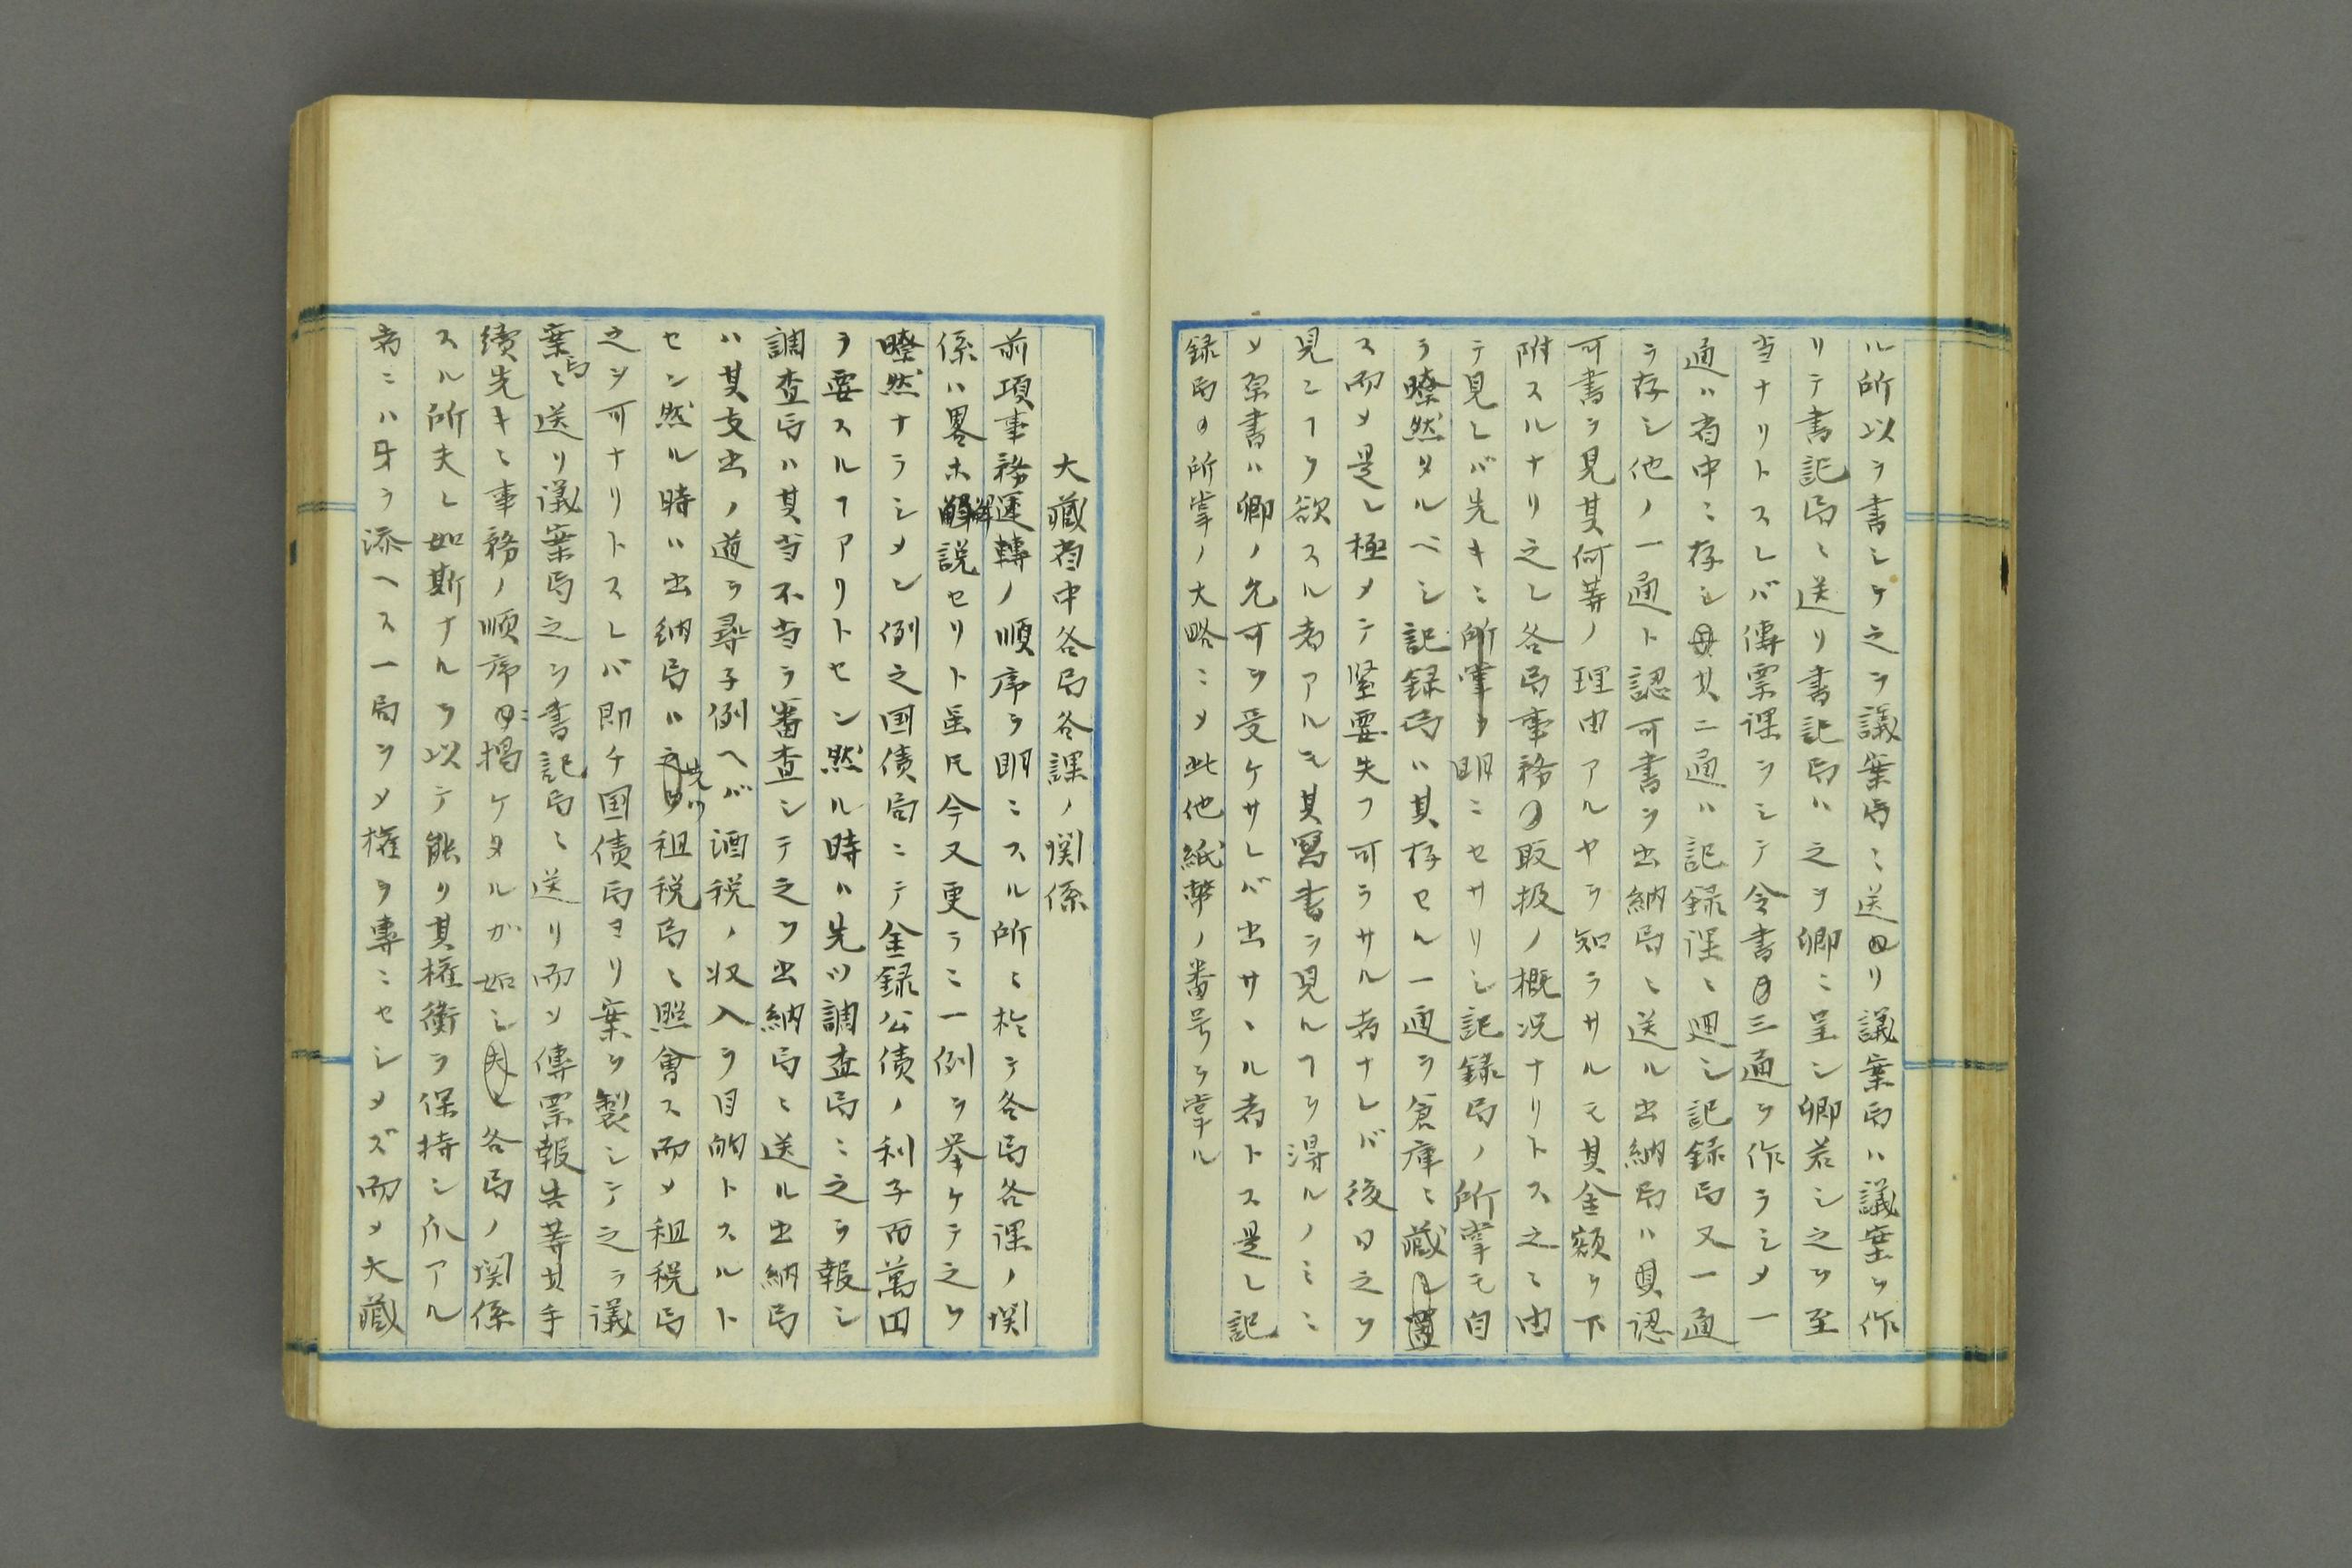 ル所以ヲ書シケ之ヲ議案局ニ送リ議案局ハ議案ヲ作
リテ書記局ニ送リ書記局ハ之ヲ卿ニ呈シ卿若シ之ヲ至
当ナリトスレバ傳票課ヲシテ令書三通ヲ作ラシメ一
通ハ省中ニ存シ其二通ハ記録課ニ廻シ記録局又一通
ヲ存シ他ノ一通ト認可書ヲ出納局ニ送ル出納局ハ其認
可書ヲ見其何等ノ理由アルヤヲ知ラサルモ其金額ヲ下
附スルナリ之レ各局事務ノ取扱ノ概況ナリトス之ニ由
テ見レバ先キニ所掌ヲ明ニセサリシ記録局ノ所掌モ自
ラ瞭然タルベシ記録局ハ其存セル一通ヲ倉庫ニ蔵置
ス而メ是レ極メテ緊要失フ可ラサル者ナレバ後日之ヲ
見ンヿヲ欲スル者アルモ其寫書ヲ見ルヿヲ得ルノミニ
メ原書ハ卿ノ允可ヲ受ケサレバ出サヽル者トス是レ記
録局ノ所掌ノ大略ニメ此他紙幣ノ番号ヲ掌ル
大蔵省中各局各課ノ関係
前項事務運轉ノ順序ヲ明ニスル所ニ於テ各局各課ノ関
係ハ畧ホ解説セリト虽𪜈今又更ラニ一例ヲ挙ケテ之ヲ
瞭然ナラシメン例之国債局ニテ金録公債ノ利子百萬円
ヲ要スルヿアリトセン然ル時ハ先ツ調査局ニ之ヲ報シ
調査局ハ其当不当ヲ審査シテ之ヲ出納局ニ送ル出納局
ハ其支出ノ道ヲ尋子例ヘバ酒税ノ収入ヲ目的トスルト
セン然ル時ハ出納局ハ先ツ租税局ニ照會ス而メ租税局
之ヲ可ナリトスレバ即チ国債局ヨリ案ヲ製シテ之ヲ議
案局ニ送リ議案局之ヲ書記局ニ送リ而メ傳票報告等其手
續先キニ事務ノ順序ニ掲ケタルガ如シ各局ノ関係
スル所夫レ如斯ナルヲ以テ能ク其権衡ヲ保持シ爪アル
者ニハ牙ヲ添ヘス一局ヲメ権ヲ専ニセシメズ而メ大藏